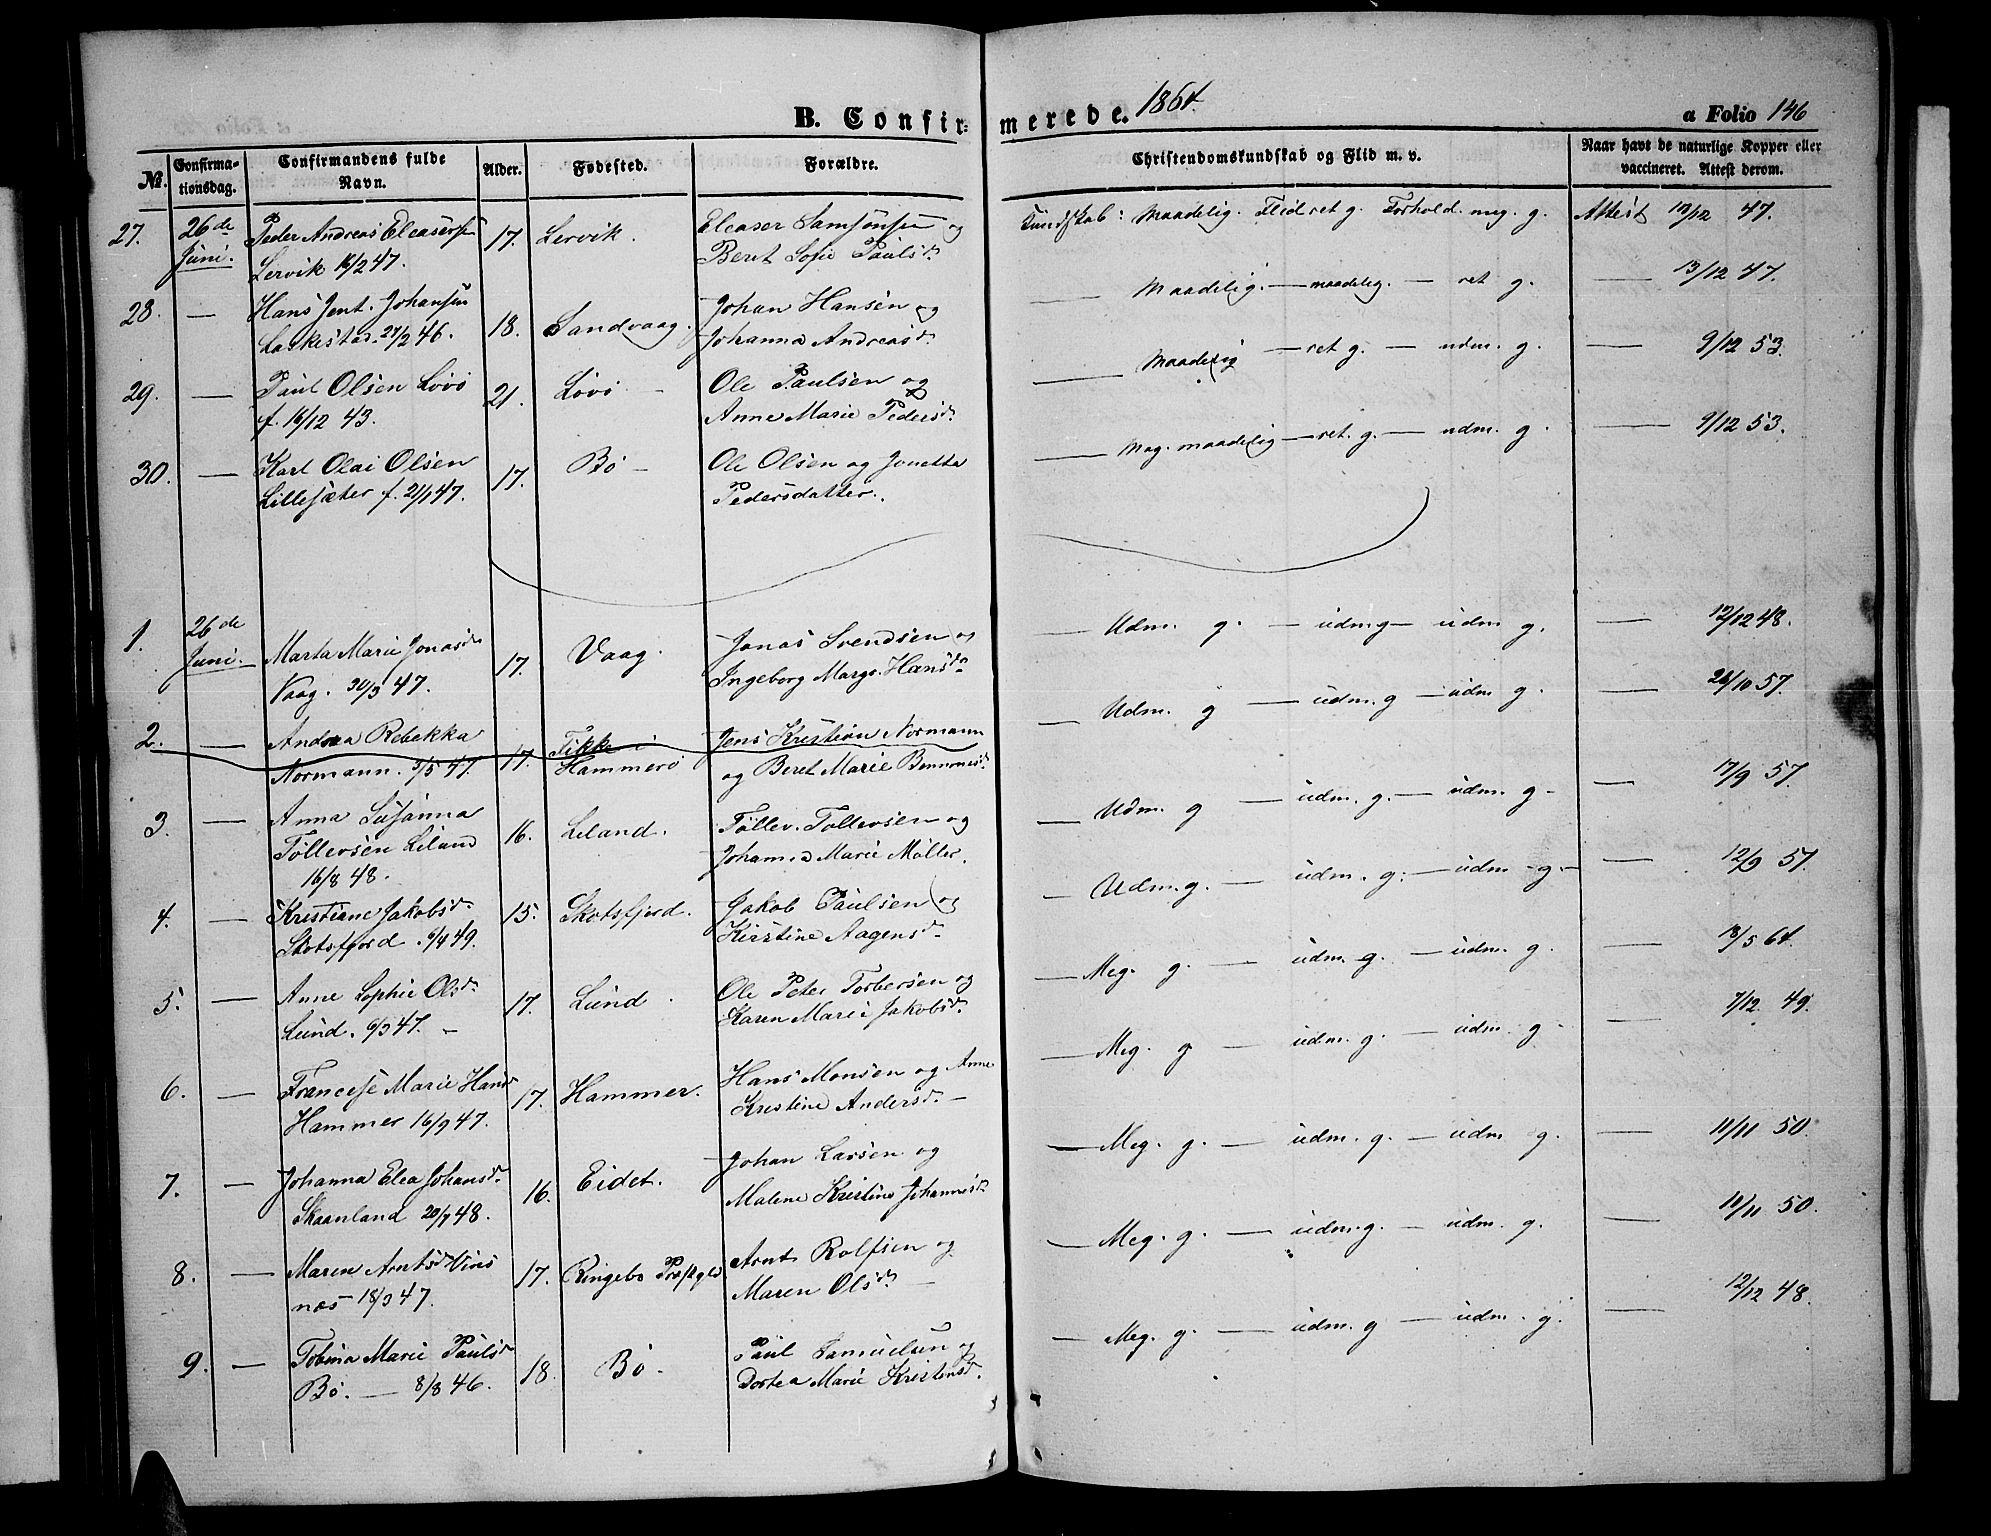 B. Confirmerede. 1864. a Folio 146
No. Confirmationsdag. Confirmandens fulde Navn. Alder. Fødested. Forældre. Christendomskundskab og Flid m. v. Naar havt de naturlige Kopper eller vaccineret. Attest derom.
27. 26de Peder Andreas Eleasersen 17. Lervik. Eleaser Samsonsen og Kundskab: Maadelig. Flid ret g. Forhold. meg. g. Attest 12/12 47.
Juni. Lervik 16/2 47. Beret Sofie Paulsd.
28. — Hans Jent. Johansen 18. Sandvaag. Johan Hansen og — Maadelig. — maadelig. — ret g. — 13/12 47.
Laskestad. 27/2 46. Johanna Andreasd.
29. — Paul Olsen Lövö 21. Lövö — Ole Paulsen og — Maadelig — ret g. — udm. g. — 9/12 53.
f. 16/12 43. Anne Marie Pedersd.
30. — Karl Olai Olsen 17. Bö — Ole Olsen og Jonetta — Mag. maadelig — ret. g. — udm. g. — 9/12 53.
Lillesæter f. 21/1 47. Pedersdatter.
1. 26de Marta Marie Jonasd. 17. Vaag. Jonas Svendsen og — Udm. g. — udm g — udm g. — 12/12 48.
Juni. Vaag. 30/3 47. Ingeborg Margr. Hansd.
2. — Andrea Rebekka 17. Fikke i Jens Kristian Normann — Udm. g — udm. g — udm g. — 26/10 57.
Normann. 5/5 47. Hammerö og Beret Marie Bennonisd.
3. — Anna Susanna 16. Leland. Töllev. Tollevsen og — Udm. g — udm. g. — udm. g — 17/9 57.
Töllevsen Leland Johanna Marie Möller.
16/8 48.
4. — Kristiane Jakobsd. 15. Skotsfjord. Jakob Paulsen og — Udm. g. — udm. g. — udm g. — 12/9 57.
Skotsfjord. 6/4 49. Kirstine Aagensd.
5. — Anne Sophie Olsd. 17. Lund. Ole Peter Torbersen og — Meg. g. — udm. g. — udm. g. — 18/5 64.
Lund. 6/3 47. — Karen Marie Jakobsd.
6. — Francese Marie Hansd. 17. Hammer. Hans Monsen og Anne — Meg. g — udm. g. — udm. g — 7/12 49.
Hammer 16/9 47. Kristine Andersd. —
7. — Johanna Elea Johansd. 16. Eidet. Johan Larsen og — Meg. g. — udm. g. — udm g. — 11/11 50.
Skaanland 20/7 48. Malene Kristine Johannesd.
8. — Maren Arntsd. Vins 17. Ringebo Præstgld Arnt Rolfsen og — Meg. g. — udm. g. — udm. g. — 11/11 50.
næs 18/3 47. Maren Olsd. —
9. — Tobina Marie Paulsd. 18. Bö. Paul Samuelsen og — Meg. g. — udm. g — udm. g. — 12/12 48.
Bö. — 8/8 46. Dortea Marie Kristensd.